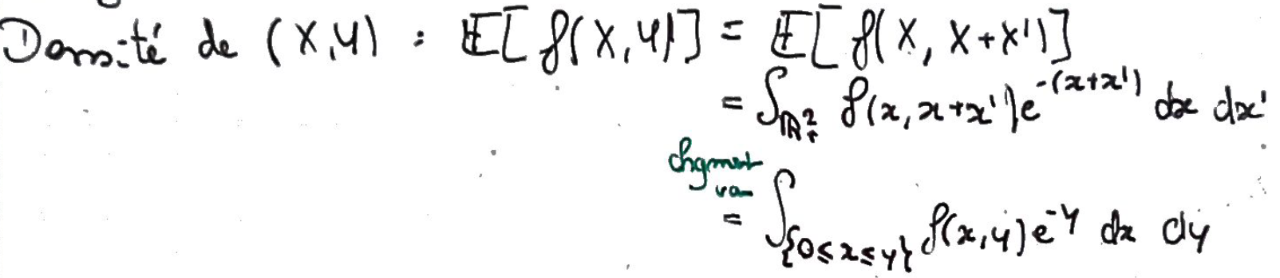 Densité de (X,Y) : 𝔼[f(X,Y)] = 𝔼[f(X, X+X')]
= ∫_{ℝ₊²} f(x, x+x') e^{-(x+x')} dx dx'
chgment var
= ∫_{0≤x≤y} f(x,y) e^{-y} dx dy